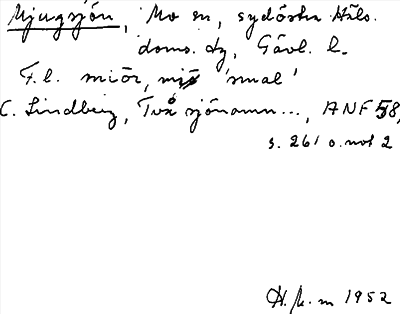 Mjugsjön, Mo sn, sydöstra Häls.
doms. hg, Gävl. l.
F.l. miör, mjö 'smal'
C. Lindberg, Två sjönamn..., ANF 58,
s. 261 o. not 2
H. k. m 1952